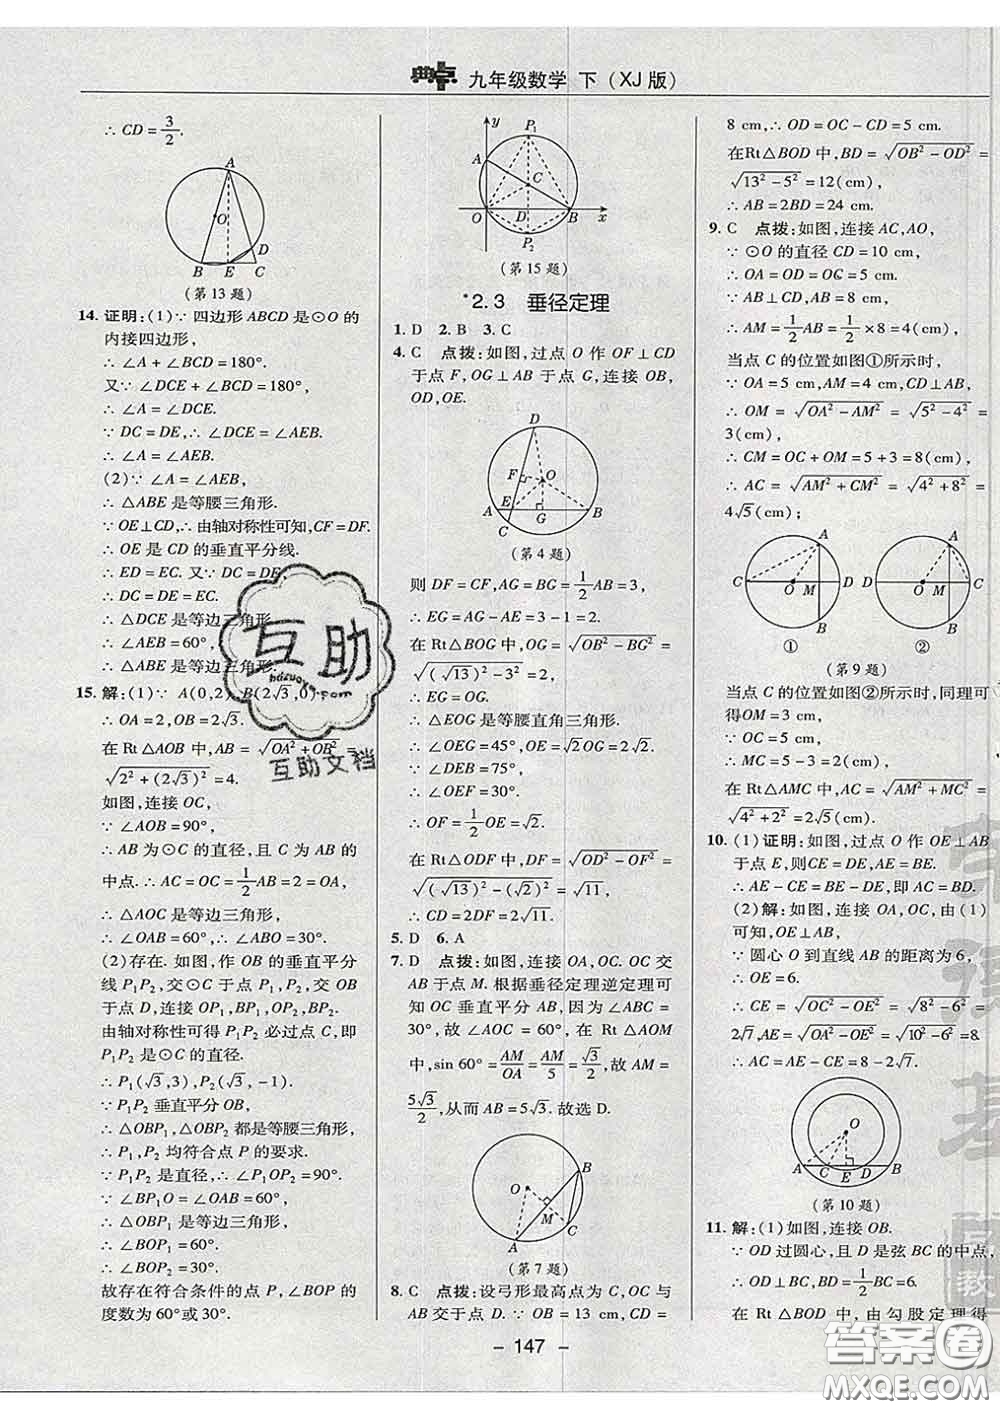 典中点 九年级数学 下（XJ版）
∴ CD=3/2.
A
O
D
B E C
(第13题)
14. 证明:(1)∵ 四边形 ABCD 是⊙O 的
内接四边形,
∴ ∠A+∠BCD=180°.
又∵ ∠DCE+∠BCD=180°,
∴ ∠A=∠DCE.
∵ DC=DE,∴ ∠DCE=∠AEB.
∴ ∠A=∠AEB.
(2)∵ ∠A=∠AEB,
∴ △ABE 是等腰三角形.
∵ OE⊥CD,∴ 由轴对称性可知,CF=DF.
∴ OE 是 CD 的垂直平分线.
∴ ED=EC. 又∵ DC=DE,
∴ DC=DE=EC.
∴ △DCE 是等边三角形.
∴ ∠AEB=60°.
∴ △ABE 是等边三角形.
15. 解:(1)∵ A(0,2),B(2√3,0),
∴ OA=2,OB=2√3.
在 Rt△AOB 中,AB=√(OA²+OB²)=
√(2²+(2√3)²)=4.
如图,连接 OC,
∵ ∠AOB=90°,
∴ AB 为⊙C 的直径,且 C 为 AB 的
中点.∴ AC=OC=1/2AB=2=OA,
∴ △AOC 是等边三角形,
∴ ∠OAB=60°,∴ ∠ABO=30°.
(2)存在. 如图,作 OB 的垂直平分
线 P₁P₂,交⊙C 于点 P₁,P₂,交 OB
于点 D,连接 OP₁,BP₁,OP₂,BP₂.
由轴对称性可得 P₁P₂ 必过点 C,即
P₁P₂ 是⊙C 的直径.
∴ P₁(√3,3),P₂(√3,-1).
∵ P₁P₂ 垂直平分 OB,
∴ △OBP₁,△OBP₂ 都是等腰三角形,
∴ P₁,P₂ 均符合点 P 的要求.
∵ P₁P₂ 是直径,∴ ∠P₁OP₂=90°.
∵ ∠BP₁O=∠OAB=60°,
∴ △OBP₁ 是等边三角形.
∴ ∠BOP₁=60°,
∴ ∠BOP₂=30°.
故存在符合条件的点 P,∠BOP 的
度数为 60°或 30°.
y P₁
A
C
O D B x
P₂
(第15题)
*2.3 垂径定理
1. D 2. B 3. C
4. C 点拨:如图,过点 O 作 OF⊥CD
于点 F,OG⊥AB 于点 G,连接 OB,
OD,OE.
D
F O
E
A G B
C
(第4题)
则 DF=CF,AG=BG=1/2AB=3,
∴ EG=AG-AE=3-1=2.
在 Rt△BOG 中,OG=√(OB²-BG²)=
√((√13)²-3²)=2.
∴ EG=OG.
∴ △EOG 是等腰直角三角形.
∴ ∠OEG=45°,OE=√2OG=2√2.
∵ ∠DEB=75°,
∴ ∠OEF=30°.
∴ OF=1/2OE=√2.
在 Rt△ODF 中,DF=√(OD²-OF²)=
√((√13)²-(√2)²)=√11,
∴ CD=2DF=2√11.
5. D 6. A
7. D 点拨:如图,连接 OA,OC. OC 交
AB 于点 M. 根据垂径定理逆定理可
知 OC 垂直平分 AB,因为∠ABC=
30°,故∠AOC=60°,在 Rt△AOM
中,sin 60°=AM/OA=AM/5=√3/2,故 AM=
5√3/2,从而 AB=5√3. 故选 D.
B
O
M
C
A
(第7题)
8. C 点拨:设弓形最高点为 C,OC 与
AB 交于点 D.∵ OB=13 cm,CD=
8 cm,∴ OD=OC-CD=5 cm.
在Rt△BOD 中,BD=√(OB²-OD²)=
√(13²-5²)=12(cm),
∴ AB=2BD=24 cm.
9. C 点拨:如图,连接 AC,AO,
∵ ⊙O 的直径 CD=10 cm,
∴ OA=OD=OC=5 cm.
∵ AB⊥CD,AB=8 cm,
∴ AM=1/2AB=1/2×8=4(cm).
当点 C 的位置如图①所示时,
∵ OA=5 cm,AM=4 cm,CD⊥AB,
∴ OM=√(OA²-AM²)=√(5²-4²)=
3(cm),
∴ CM=OC+OM=5+3=8(cm).
∴ AC=√(AM²+CM²)=√(4²+8²)=
4√5(cm);
A A
C O M D D O M C
B B
① ②
(第9题)
当点 C 的位置如图②所示时,同理可
得OM=3 cm,
∵ OC=5 cm,
∴ MC=5-3=2(cm).
在 Rt△AMC 中,AC=√(AM²+MC²)=
√(4²+2²)=2√5(cm).
10. (1)证明:如图,过点 O 作 OE⊥AB
于点 E,则CE=DE,AE=BE.
∴ AE-CE=BE-DE,即 AC=BD.
(2)解:如图,连接 OA,OC,由(1)
可知,OE⊥AB,
∵ 圆心 O 到直线 AB 的距离为 6,
∴ OE=6.
∴ CE=√(OC²-OE²)=√(8²-6²)=
2√7,AE=√(OA²-OE²)=√(10²-6²)=8.
∴ AC=AE-CE=8-2√7.
O
A C E D B
(第10题)
11. 解:(1)如图,连接 OB.
∵ OD 过圆心,且 D 是弦 BC 的中点,
∴ OD⊥BC,BD=1/2BC=6.
在 Rt△BOD 中,由勾股定理得
- 147 -
互助
hdzuoye.com
互助文档
答案圈
MXQE.COM